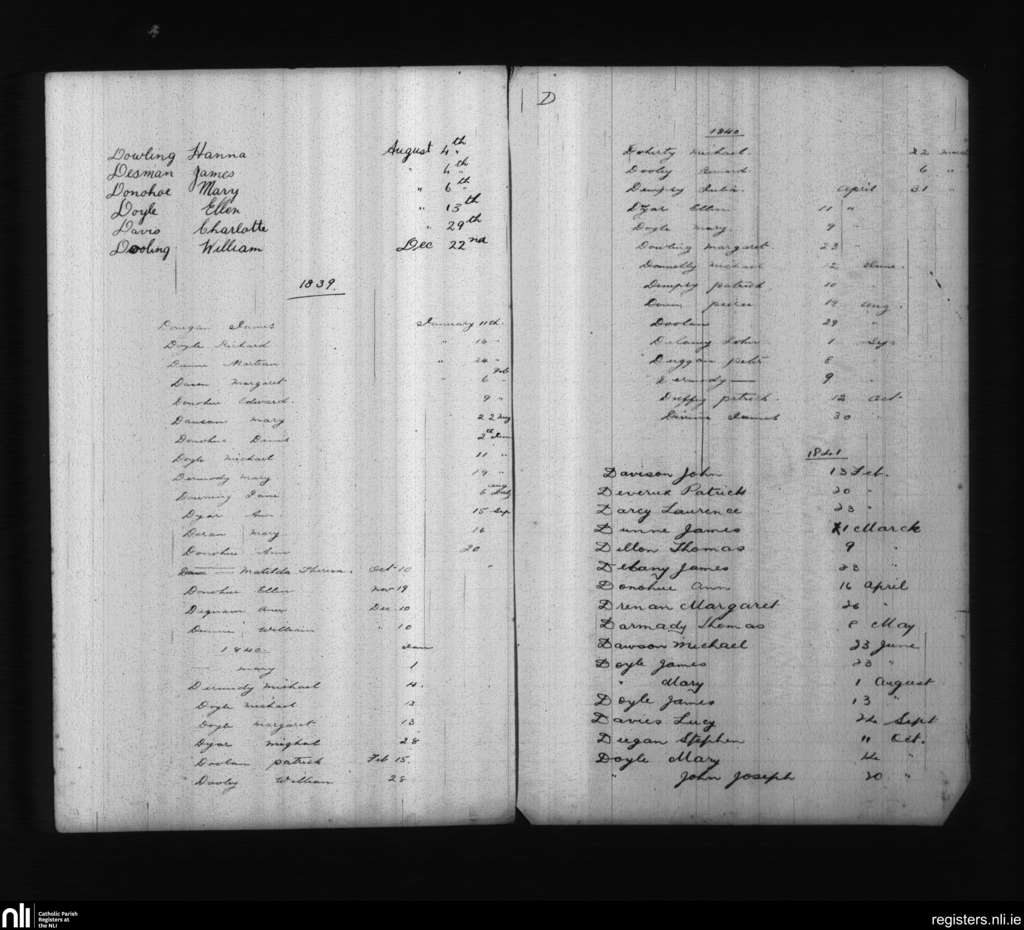 Dowling Hanna August 4th
Desman James " 4th
Donohoe Mary " 6th
Doyle Ellen " 13th
Davis Charlotte " 29th
Dooling William Dec 22nd
1839.
Dougan James January 11th
Doyle Richard " 16
Dunne Martin " 24 "
margaret Feb 6 "
Donohue Edward. 9 "
Dawson mary 22 May
Donohue Daniel 2nd June
Doyle michael 11 "
Dermody mary 19 "
Downing Jane aug 6
Dyar Ann. 15 Sep
Doran mary 16
Donohue Ann 20 "
Matilda Theresa. Oct 10
Donohue Ellen nov 19
Duignam Ann Dec. 10
Dunne William " 10
1840 Jan
— mary 1
Dermody michael 4.
Doyle michael
Doyle margaret 13
Dyar mighal 28
Doolan patrick Feb 15.
Dooley William 28
D
1840
Doherty michael 22
Dooley 6 "
Dempsy Julia. april 31 "
Dyar Ellen 11 "
Doyle mary. 9 "
Dowling margaret. 23
Donnelly michael 12 June.
Dempsy patrick 10 "
peter 19 aug.
Doolan 29 "
Delany John 1 Sep
Duggan peter 8
Dermody — 9 "
Duffy patrick 12 Oct
Divine James 30 "
1841
Davison John 13 Feb.
Deverux Patrick 20 "
Darcy Laurence 23 "
Dunne James 1 March
Dillon Thomas 9 "
Delany James 23 "
Donohue Ann 16 April
Drenan Margaret 26 "
Darmady Thomas 8 May
Dawson Michael 23 June
Doyle James 23 "
" Mary 1 August
Doyle James 13 "
Davies Lucy 24 Sept
Deegan Stephen 11 Oct.
Doyle Mary 14 "
" John Joseph 20 "
nli Catholic Parish
Registers at
the NLI
registers.nli.ie